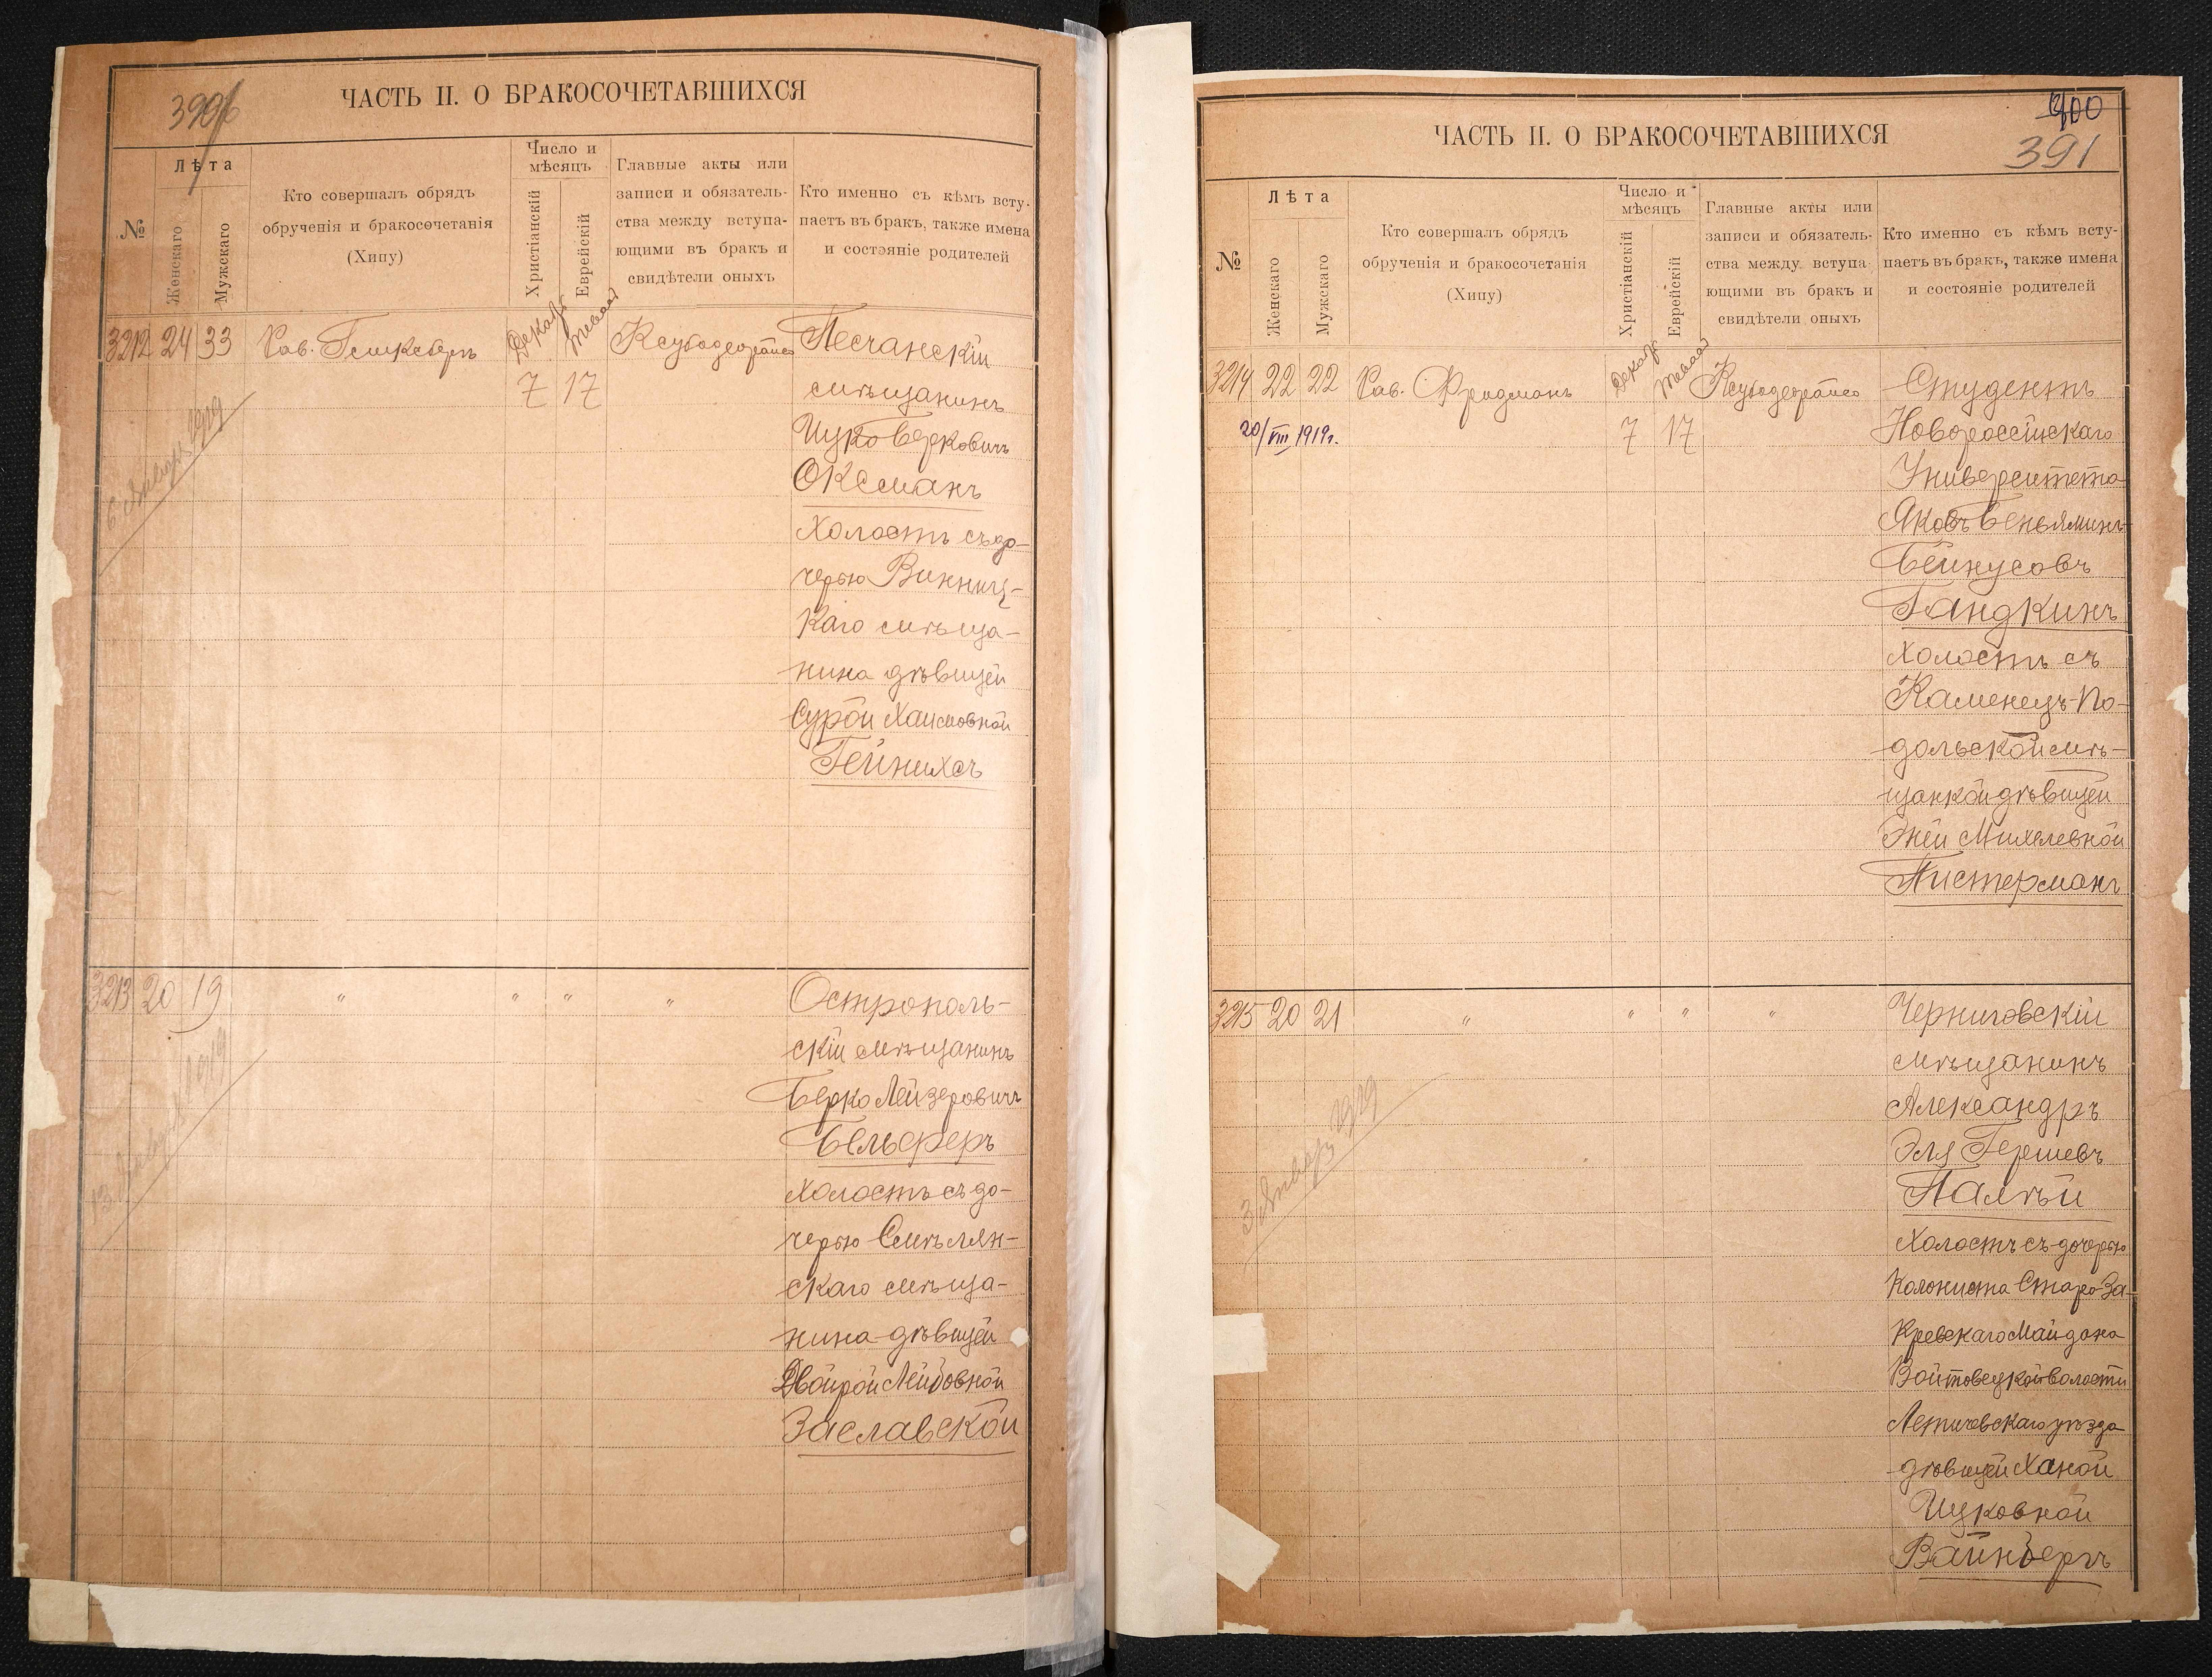 ЧАСТЬ II. О БРАКОСОЧЕТАВШИХСЯ
№
Лѣта
Женскаго
Мужскаго
Кто совершалъ обрядъ
обрученія и бракосочетанія
(Хипу)
Число и
мѣсяцъ
Христіанскій
Еврейскій
Главные акты или
записи и обязатель-
ства между вступа-
ющими въ бракъ и
свидѣтели оныхъ
Кто именно съ кѣмъ всту-
паетъ въ бракъ, также имена
и состояніе родителей
3212 24 33 Рав. Декабр Тевеса Песчанскій
7 17 мѣщанинъ
Ицко Берковичъ
Оксманъ
холостъ съ до-
черью Винниц-
каго мѣща-
нина дѣвицей
Сурой Хаимовной
Гейнихсъ
6 Января 1919
3213 20 19 " " " " Острополь-
скій мѣщанинъ
Берко Лейзеровичъ
Бельферъ
холостъ съ до-
черью Смѣлян-
скаго мѣща-
нина дѣвицей
Двойрой Лейбовной
Заславской
13 Января 1919
ЧАСТЬ II. О БРАКОСОЧЕТАВШИХСЯ
400
391
№
Лѣта
Женскаго
Мужскаго
Кто совершалъ обрядъ
обрученія и бракосочетанія
(Хипу)
Число и
мѣсяцъ
Христіанскій
Еврейскій
Главные акты или
записи и обязатель-
ства между вступа-
ющими въ бракъ и
свидѣтели оныхъ
Кто именно съ кѣмъ всту-
паетъ въ бракъ, также имена
и состояніе родителей
3214 22 22 Рав. Фридманъ Декабр Тевеса Студентъ
20/VIII 1919г. 7 17 Новороссійскаго
Университета
Яковъ Беньяминъ
Бейнусовъ
Гандкинъ
холостъ съ
Каменецъ-По-
дольской мѣ-
щанкой дѣвицей
Эней Михелевной
Пистерманъ
3215 20 21 " " " " Черниговскій
мѣщанинъ
Александръ
Эля Гершевъ
Палѣй
холостъ съ дочерью
колониста Старо-За-
кревскаго Майдана
Войтовецкой волости
Летичевскаго уѣзда
дѣвицей Ханой
Ицковной
Вайнбергъ
3 Января 1919